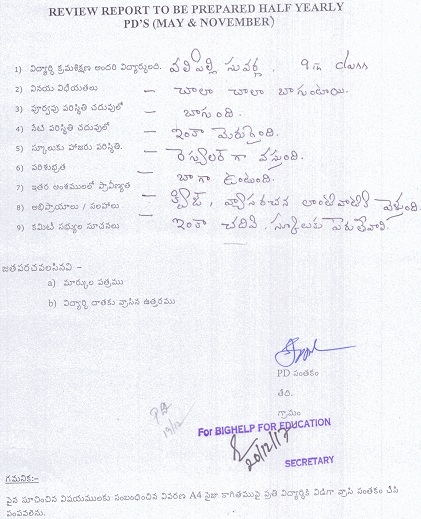 REVIEW REPORT TO BE PREPARED HALF YEARLY
PD'S (MAY & NOVEMBER)
1) విద్యార్థి క్రమశిక్షణ అందరి విద్యార్థులది. వలిపిల్లి సువర్ణ. 9th class
2) వినయ విధేయతలు – చాలా చాలా బాగుంటాయి.
3) పూర్వపు పరిస్థితి చదువులో – బాగుంది.
4) నేటి పరిస్థితి చదువులో – ఇంకా మెరుగైంది.
5) స్కూలుకు హాజరు పరిస్థితి. – రెగ్యులర్ గా వస్తుంది.
6) పరిశుభ్రత – బాగా ఉంటుంది.
7) ఇతర అంశములలో ప్రావీణ్యత – క్విజ్, వ్యాసరచన లాంటివాటికి వెళ్తుంది.
8) అభిప్రాయాలు / సలహాలు – ఇంకా చదివి, స్కూలుకు పేరు తేవాలి.
9) కమిటీ సభ్యుల సూచనలు
జతపరచవలసినవి –
a) మార్కుల పత్రము
b) విద్యార్థి దాతకు వ్రాసిన ఉత్తరము
PD సంతకం
తేది.
గ్రామం
For BIGHELP FOR EDUCATION
20/12/17
SECRETARY
గమనిక:-
పైన సూచించిన విషయములకు సంబంధించిన వివరణ A4 సైజు కాగితముపై ప్రతి విద్యార్థికి విడిగా వ్రాసి సంతకం చేసి
పంపవలెను.